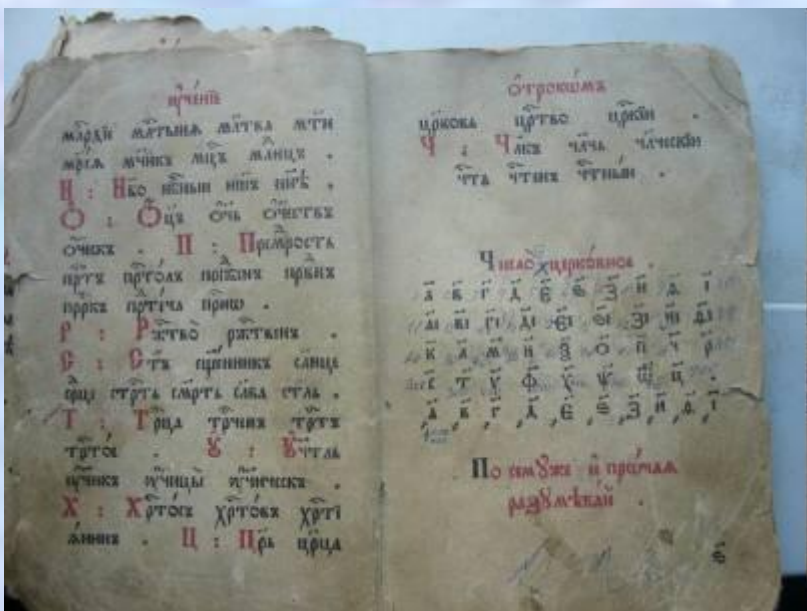 ᲂу҆че́нїе
млⷭ҇рдїи мл҃тынѧ мл҃тва мт҃и
мр҃їѧ мч҃нкъ мцⷭ҇ъ млⷣнцъ .
Н : Нб҃о нбⷭ҇ныи нн҃ѣ
Ѻ : Ѻ҆ц҃ъ ѻ҆ч҃ь ѻ҆те́чествъ
ѻ҆ч҃ескъ . П : Премⷣрость
прⷭ҇тъ прⷭ҇то́лъ прпⷣбнъ првⷣнъ
прⷪ҇ркъ прⷣтча
Р : Ржⷭ҇тво̀ ржⷭ҇твенъ .
С : Ст҃ъ сщ҃е́нникъ сл҃нце
срⷣце стрⷭ҇ть смр҃ть сла́ва ст҃ль .
Т : Трⷪ҇ца трⷪ҇ченъ трⷭ҇тъ
трⷭ҇то́е . Ꙋ҆ : Ꙋ҆чт҃ль
ᲂу҆чн҃къ ᲂу҆чн҃цы ᲂу҆чн҃ческъ .
Х : Хрⷭ҇то́съ хрⷭ҇то́въ хрⷭ҇тї
ѧ́нинъ . Ц : Цр҃ь цр҃ца
Ѻ҆трокѡ́мъ
цр҃кова црⷭ҇тво цр҃кїи .
Ч : Чл҃къ чл҃ча чл҃ческїи
чтⷭ҇а чтⷭ҇енъ чтⷭ҇ны́и .
Число̀ церко́вное .
а҃ в҃ г҃ д҃ є҃ ѕ҃ з҃ и҃ ѳ҃ і҃
а҃і в҃і г҃і д҃і є҃і ѕ҃і з҃і и҃і ѳ҃і
к҃ л҃ м҃ н҃ ѯ҃ ѻ҃ п҃ ч҃ р҃
с҃ т҃ у҃ ф҃ х҃ ѱ҃ ѿ҃ ц҃ .
҂а҃ ҂в҃ ҂г҃ ҂д҃ ҂є҃ ҂ѕ҃ ҂з҃ ҂и҃ ҂ѳ҃ ҂і҃
По семꙋ́же и҆ про́чаѧ
разꙋмѣва́й .